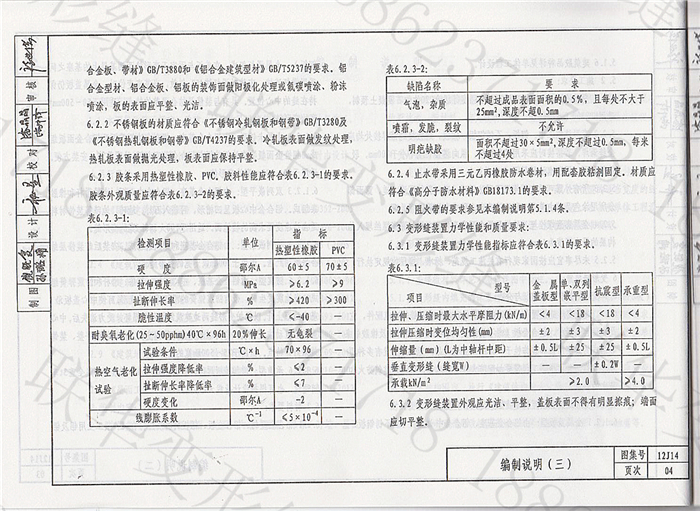 合金板、带材》GB/T3880和《铝合金建筑型材》GB/T5237的要求。铝
合金型材、铝合金板、铝板的装饰面做阳极化处理或氟碳喷涂、粉沫
喷涂，板的表面应平整、光洁。
6.2.2 不锈钢板的材质应符合《不锈钢冷轧钢板和钢带》GB/T3280及
《不锈钢热轧钢板和钢带》GB/T4237的要求，冷轧板表面做发纹处理，
热轧板表面做抛光处理，板表面应保持平整。
6.2.3 胶条采用热塑性橡胶、PVC。胶料性能应符合表6.2.3-1的要求，
胶条外观质量应符合表6.2.3-2的要求。
表6.2.3-1:
检测项目 单位 指 标
热塑性橡胶 PVC
硬 度 邵尔A 60±5 70±5
拉伸强度 MPa ≥6.2 ≥9
扯断伸长率 % ≥420 ≥300
脆性温度 ℃ <-40 —
耐臭氧老化(25~50pphm)40℃×96h 20%伸长 无龟裂 —
热空气老化试验 试验条件 ℃×h 70×96 —
拉伸强度降低率 % <2 —
扯断伸长率降低率 % <7 —
硬度变化 邵尔A -2 —
线膨胀系数 ℃⁻¹ <5×10⁻⁴ —
表6.2.3-2:
缺陷名称 要 求
气泡，杂质 不超过成品表面面积的0.5%，且每处不大于
25mm²,深度不超0.5mm
喷霜，发脆，裂纹 不允许
明疤缺胶 面积不超过30×5mm²,深度不超过0.5mm，每米
不超过4处
6.2.4 止水带采用三元乙丙橡胶防水卷材，用配套胶粘剂固定，材质应
符合《高分子防水材料》GB18173.1的要求。
6.2.5 阻火带的要求参见本编制说明第5.1.4条。
6.3 变形缝装置力学性能和质量要求：
6.3.1 变形缝装置力学性能指标应符合表6.3.1的要求。
表6.3.1:
项目 型号 金 属盖板型 单、双列嵌平型 抗震型 承重型
拉伸、压缩时最大水平摩阻力(kN/m) <4 <18 <18 <4
拉伸压缩时变位均匀性(mm) ±2 ±3 ±3 ±2
伸缩量(mm)(L为中轴杆中距) ±0.5L ±25 ±25 ±0.5L
垂直变形缝(缝宽W) — — ±0.2W —
承载kN/m² ≥2.0 ≥4.0
6.3.2 变形缝装置外观应光洁、平整，盖板表面不得有明显擦痕；墙面
应切平整。
编制说明（三）
图集号 12J14
页次 04
审核
校对
设计
制图
联华变形缝
18862371718